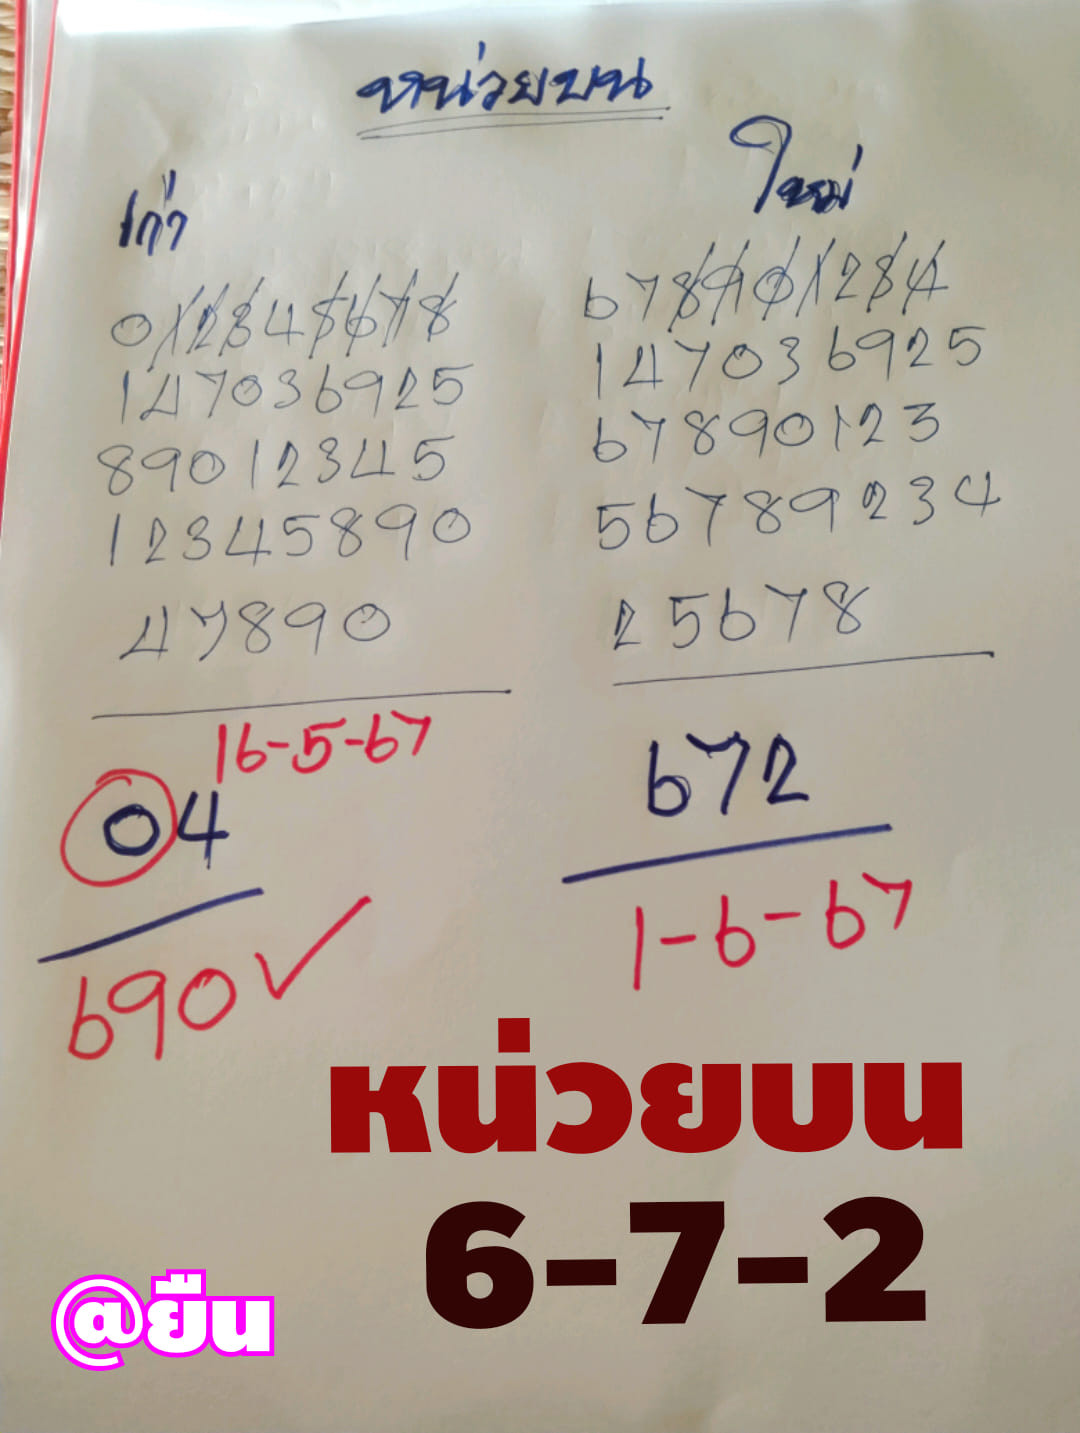 หน่วยบน
เก่า
012345678
147036925
89012345
12345890
47890
16-5-67
04
690
ใหม่
678901234
147036925
67890123
56789234
25678
672
1-6-67
หน่วยบน
6-7-2
@ยืน